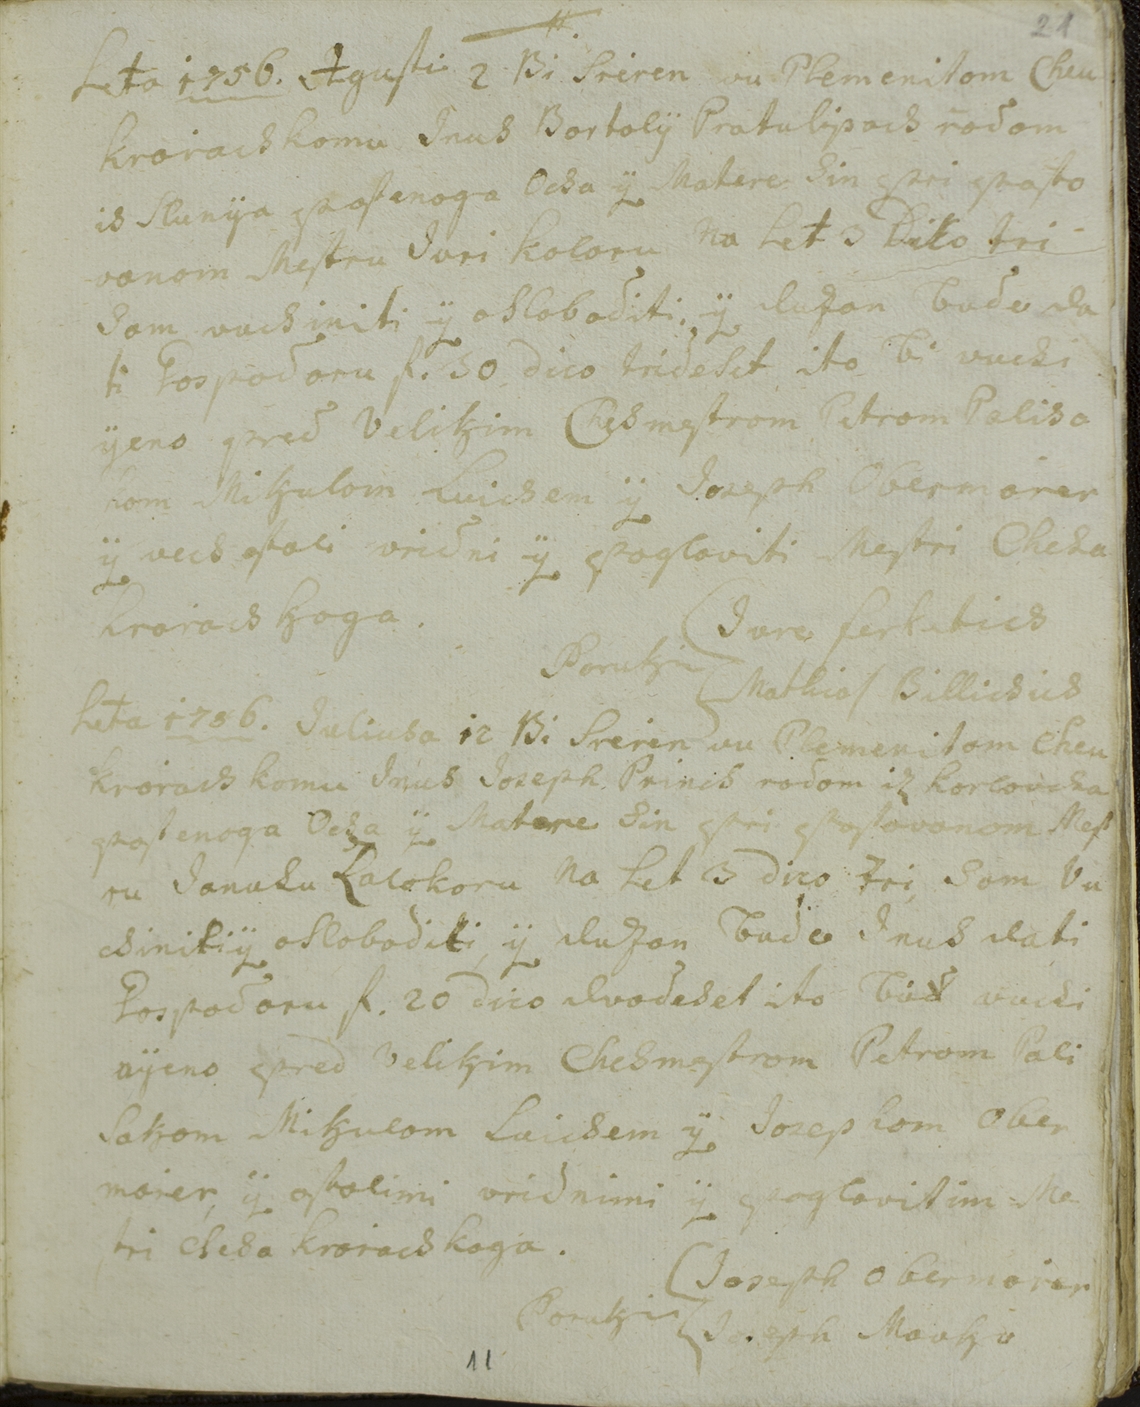 21
Leta 1756. Agusti 2 Bi Sreren vu Plemenitom Cheu
kroiachkomu Inus Bortolÿ Pratulipach rodom
is Slunÿa postenoga Ocza ÿ Matere Sin pri posto
vanom Mestru Juri koloru Na Let 3 Dito tri
Sam vuchiniti ÿ osloboditi, ÿ duxan Bude da
ti Gospodaru f. 30 dico trideset ito Bi vuchi
ÿeno pred Velikim Chehmestrom Petrom Palisa
kom Mikulom Luichem ÿ Joseph Obermaier
ÿ vech ostali vridni ÿ poglaviti Mestri Cheha
kroiachkoga.
Jure ferketich
Poruki
Mathias Billichich
Leta 1756. Juliusa 12 Bi Sreren vu Plemenitom Cheu
kroiachkomu Inus Joseph Princh rodom iz korlovcha
postenoga Ocza ÿ Matere Sin pri postovanom Mest
ru Januhu Lalokoru Na Let 3 dico tri Sam Vu
chiniti ÿ osloboditi, ÿ duxan Bude Inus dati
Gospodaru f. 20 dico dvadeset ito vuchi
nÿeno pred Velikim Chehmestrom Petrom Pali
sakom Mikulom Luichem ÿ Josephom Ober
maier, ÿ ostalimi vridnimi ÿ poglavitim Me
stri Cheha kroiachkoga.
Joseph Obermaier
Poruki
Joseph
11